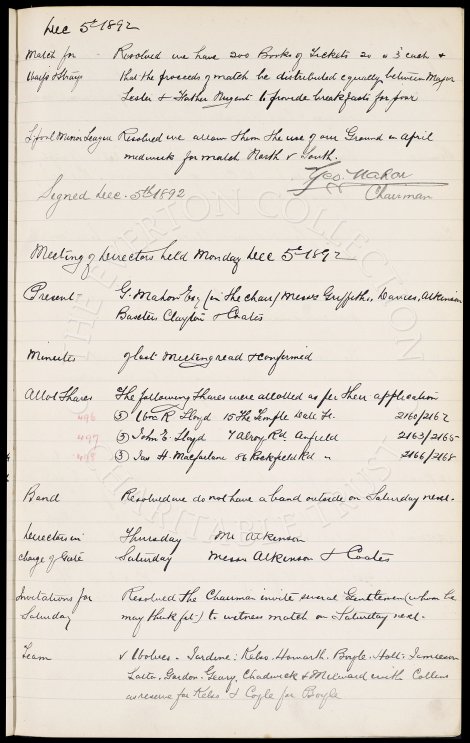 Dec 5th 1892
Match for Resolved we have 200 Books of Tickets 20 @ 3d each &
Waifs & Strays that the proceeds of match be distributed equally between Major
Lester & Father Nugent to provide breakfasts for poor
L'pool Minor League Resolved we allow them the use of our Ground in April
midweek for match North v South.
Geo. Mahon
Signed Dec. 5th 1892 Chairman
THE EVERTON COLLECTION
CHARITABLE TRUST
Meeting of Directors held Monday Dec 5th 1892
Present - G. Mahon Esq (in the chair) Messrs Griffiths, Davies, Atkinson
Baxter, Clayton & Coates
Minutes of last Meeting read & confirmed
Allot Shares The following Shares were allotted as per their application
496 (3) R Lloyd 15 The Temple Dale St. 2160/2162
497 (3) John E. Lloyd 7 Alroy Rd. Anfield 2163/2165
498 (3) Jas H. Macfarlane 86 Rockfield Rd " 2166/2168
Band Resolved we do not have a band outside on Saturday next.
Directors in Thursday Mr Atkinson
charge of Gate Saturday Messrs Atkinson & Coates
Invitations for Resolved the Chairman invite several Gentlemen (whom he
Saturday may think fit) to witness match on Saturday next.
Team v Wolves - Jardine: Kelso. Howarth. Boyle. Holt. Jamieson
Latta. Gordon. Geary. Chadwick & Milward with Collins
as reserve for Kelso & Coyle for Boyle